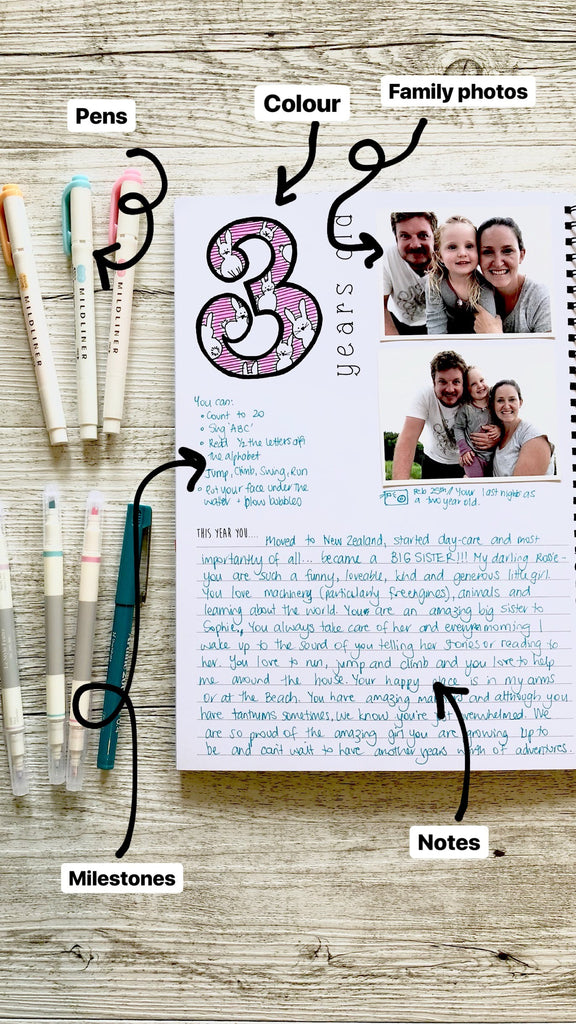 Pens
Colour
Family photos
MILDLINER
MILDLINER
MILDLINER
3
years old
You can:
• Count to 20
• Sing 'ABC'
• Read 1/2 the letters of
the alphabet
Jump, Climb, Swing, Run
• Put your face under the
water + blow bubbles
Feb 25th // Your last night as
a two year old.
THIS YEAR YOU....
Moved to New Zealand, started day-care and most
importantly of all... became a BIG SISTER!!! My darling Rosie -
you are such a funny, loveable, kind and generous little girl.
You love machinery (particularly fire engines), animals and
learning about the world. You are an amazing big sister to
Sophie, You always take care of her and every morning I
wake up to the sound of you telling her stories or reading to
her. You love to run, jump and climb and you love to help
me around the house. Your happy place is in my arms
or at the Beach. You have amazing and although you
have tantrums sometimes, we know you're overwhelmed. We
are so proud of the amazing girl you are growing up to
be and can't wait to have another years worth of adventures.
Milestones
Notes